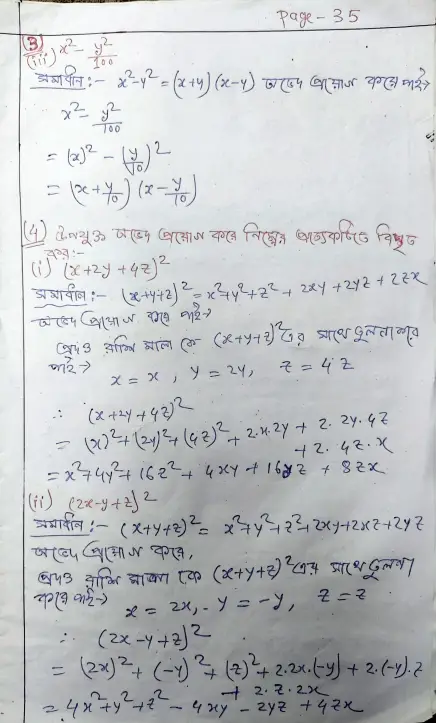 Page - 35
(3)
(iii) x² - y²/100
সমাধান :- x²-y² = (x+y) (x-y) অভেদ প্রয়োগ করে পাই→
x² - y²/100
= (x)² - (y/10)²
= (x + y/10) (x - y/10)
(4) উপযুক্ত অভেদ প্রয়োগ করে নিম্নের প্রত্যেকটিতে বিস্তৃত
কর:-
(i) (x+2y+4z)²
সমাধান :- (x+y+z)² = x²+y²+z² + 2xy + 2yz + 2zx
অভেদ প্রয়োগ করে পাই→
প্রদত্ত রাশি মালা কে (x+y+z)² এর সাথে তুলনা করে
পাই→
x = x , y = 2y, z = 4z
∴ (x+2y+4z)²
= (x)²+(2y)²+(4z)² + 2.x.2y + 2. 2y. 4z
+ 2. 4z. x
= x²+4y²+16z² + 4xy + 16yz + 8zx
(ii) (2x-y+z)²
সমাধান :- (x+y+z)² = x²+y²+z²+2xy+2xz+2yz
অভেদ প্রয়োগ করে,
প্রদত্ত রাশি মালা কে (x+y+z)² এর সাথে তুলনা
করে পাই→
x = 2x, - y = -y, z = z
∴ (2x-y+z)²
= (2x)² + (-y)² + (z)² + 2.2x.(-y) + 2.(-y).z
+ 2.z.2x
= 4x²+y²+z² - 4xy - 2yz + 4zx